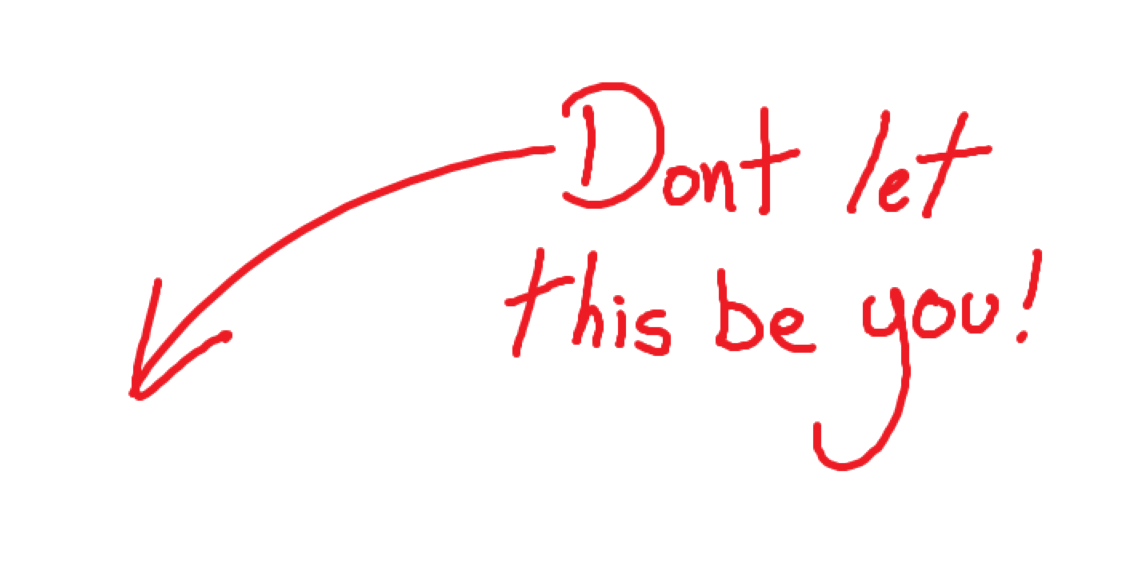 Dont let
this be you!